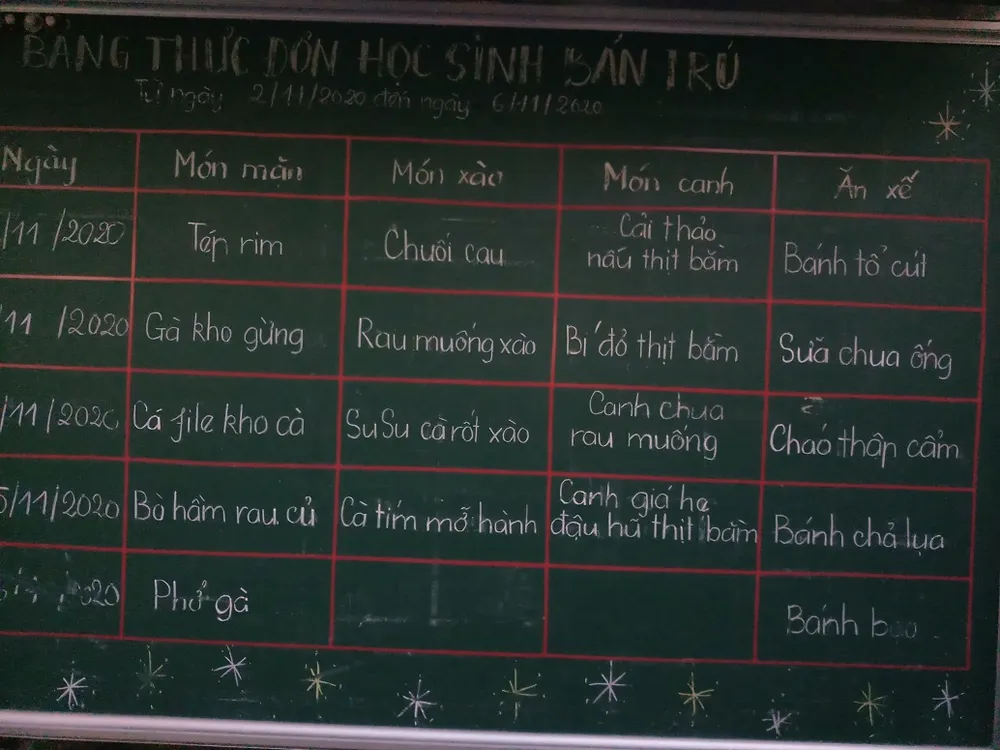 BẢNG THỰC ĐƠN HỌC SINH BÁN TRÚ
Từ ngày 2/11/2020 đến ngày 6/11/2020
Ngày Món mặn Món xào Món canh Ăn xế
/11/2020 Tép rim Chuối cau Cải thảo
nấu thịt bằm Bánh tổ cút
11 /2020 Gà kho gừng Rau muống xào Bí đỏ thịt bằm Sữa chua ống
/11/2020 Cá file kho cà SuSu cà rốt xào Canh chua
rau muống Cháo thập cẩm
5/11/2020 Bò hầm rau củ Cà tím mỡ hành Canh giá hẹ
đậu hũ thịt bằm Bánh chả lụa
2020 Phở gà Bánh bao